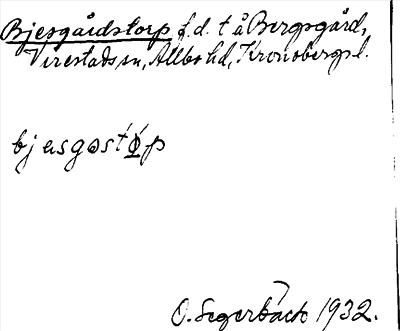 Bjesgårdstorp f.d. t å Bergsgård,
Virestads sn, Allbo hd, Kronobergs l.
O. Segerbäck 1932.